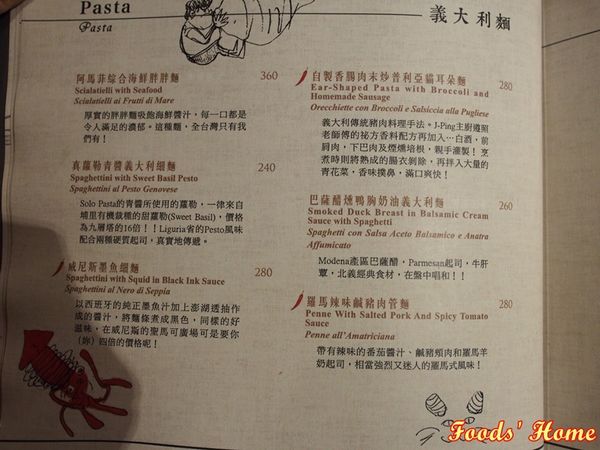 Pasta
Pasta
義大利麵
阿馬菲綜合海鮮胖胖麵 360
Scialatielli with Seafood
Scialatielli ai Frutti di Mare
厚實的胖胖麵吸飽海鮮醬汁，每一口都是
令人滿足的濃郁。這種麵，全台灣只有我
們有！
真蘿勒青醬義大利細麵 240
Spaghettini with Sweet Basil Pesto
Spaghettini al Pesto Genovese
Solo Pasta的青醬所使用的蘿勒，一律來自
埔里有機栽種的甜蘿勒(Sweet Basil)，價格
為九層塔的16倍！！Liguria省的Pesto風味
配合兩種硬質起司，真實地傳遞。
威尼斯墨魚細麵 280
Spaghettini with Squid in Black Ink Sauce
Spaghettini al Nero di Seppia
以西班牙的純正墨魚汁加上澎湖透抽作
成的醬汁，將麵條煮成黑色，同樣的好
滋味，在威尼斯的聖馬可廣場可是要你
(妳）四倍的價格呢！
自製香腸肉末炒普利亞貓耳朵麵 280
Ear-Shaped Pasta with Broccoli and
Homemade Sausage
Orecchiette con Broccoli e Salsiccia alla Pugliese
義大利傳統豬肉料理手法。J-Ping主廚遵照
老師傅的祕方香料配方再加入…白酒，前
肩肉，下巴肉及煙燻培根，親手灌製！烹
煮時則將熟成的腸衣剝除，再拌入大量的
青花菜，香味撲鼻，滿口爽快！
巴薩醋燻鴨胸奶油義大利麵 260
Smoked Duck Breast in Balsamic Cream
Sauce with Spaghetti
Spaghetti con Salsa Aceto Balsamico e Anatra
Affumicato
Modena產區巴薩醋，Parmesan起司，牛肝
蕈，北義經典食材，在盤中唱和！！
羅馬辣味鹹豬肉管麵 280
Penne With Salted Pork And Spicy Tomato
Sauce
Penne all'Amatriciana
帶有辣味的番茄醬汁、鹹豬頰肉和羅馬羊
奶起司，相當強烈又迷人的羅馬式風味！
Foods' Home